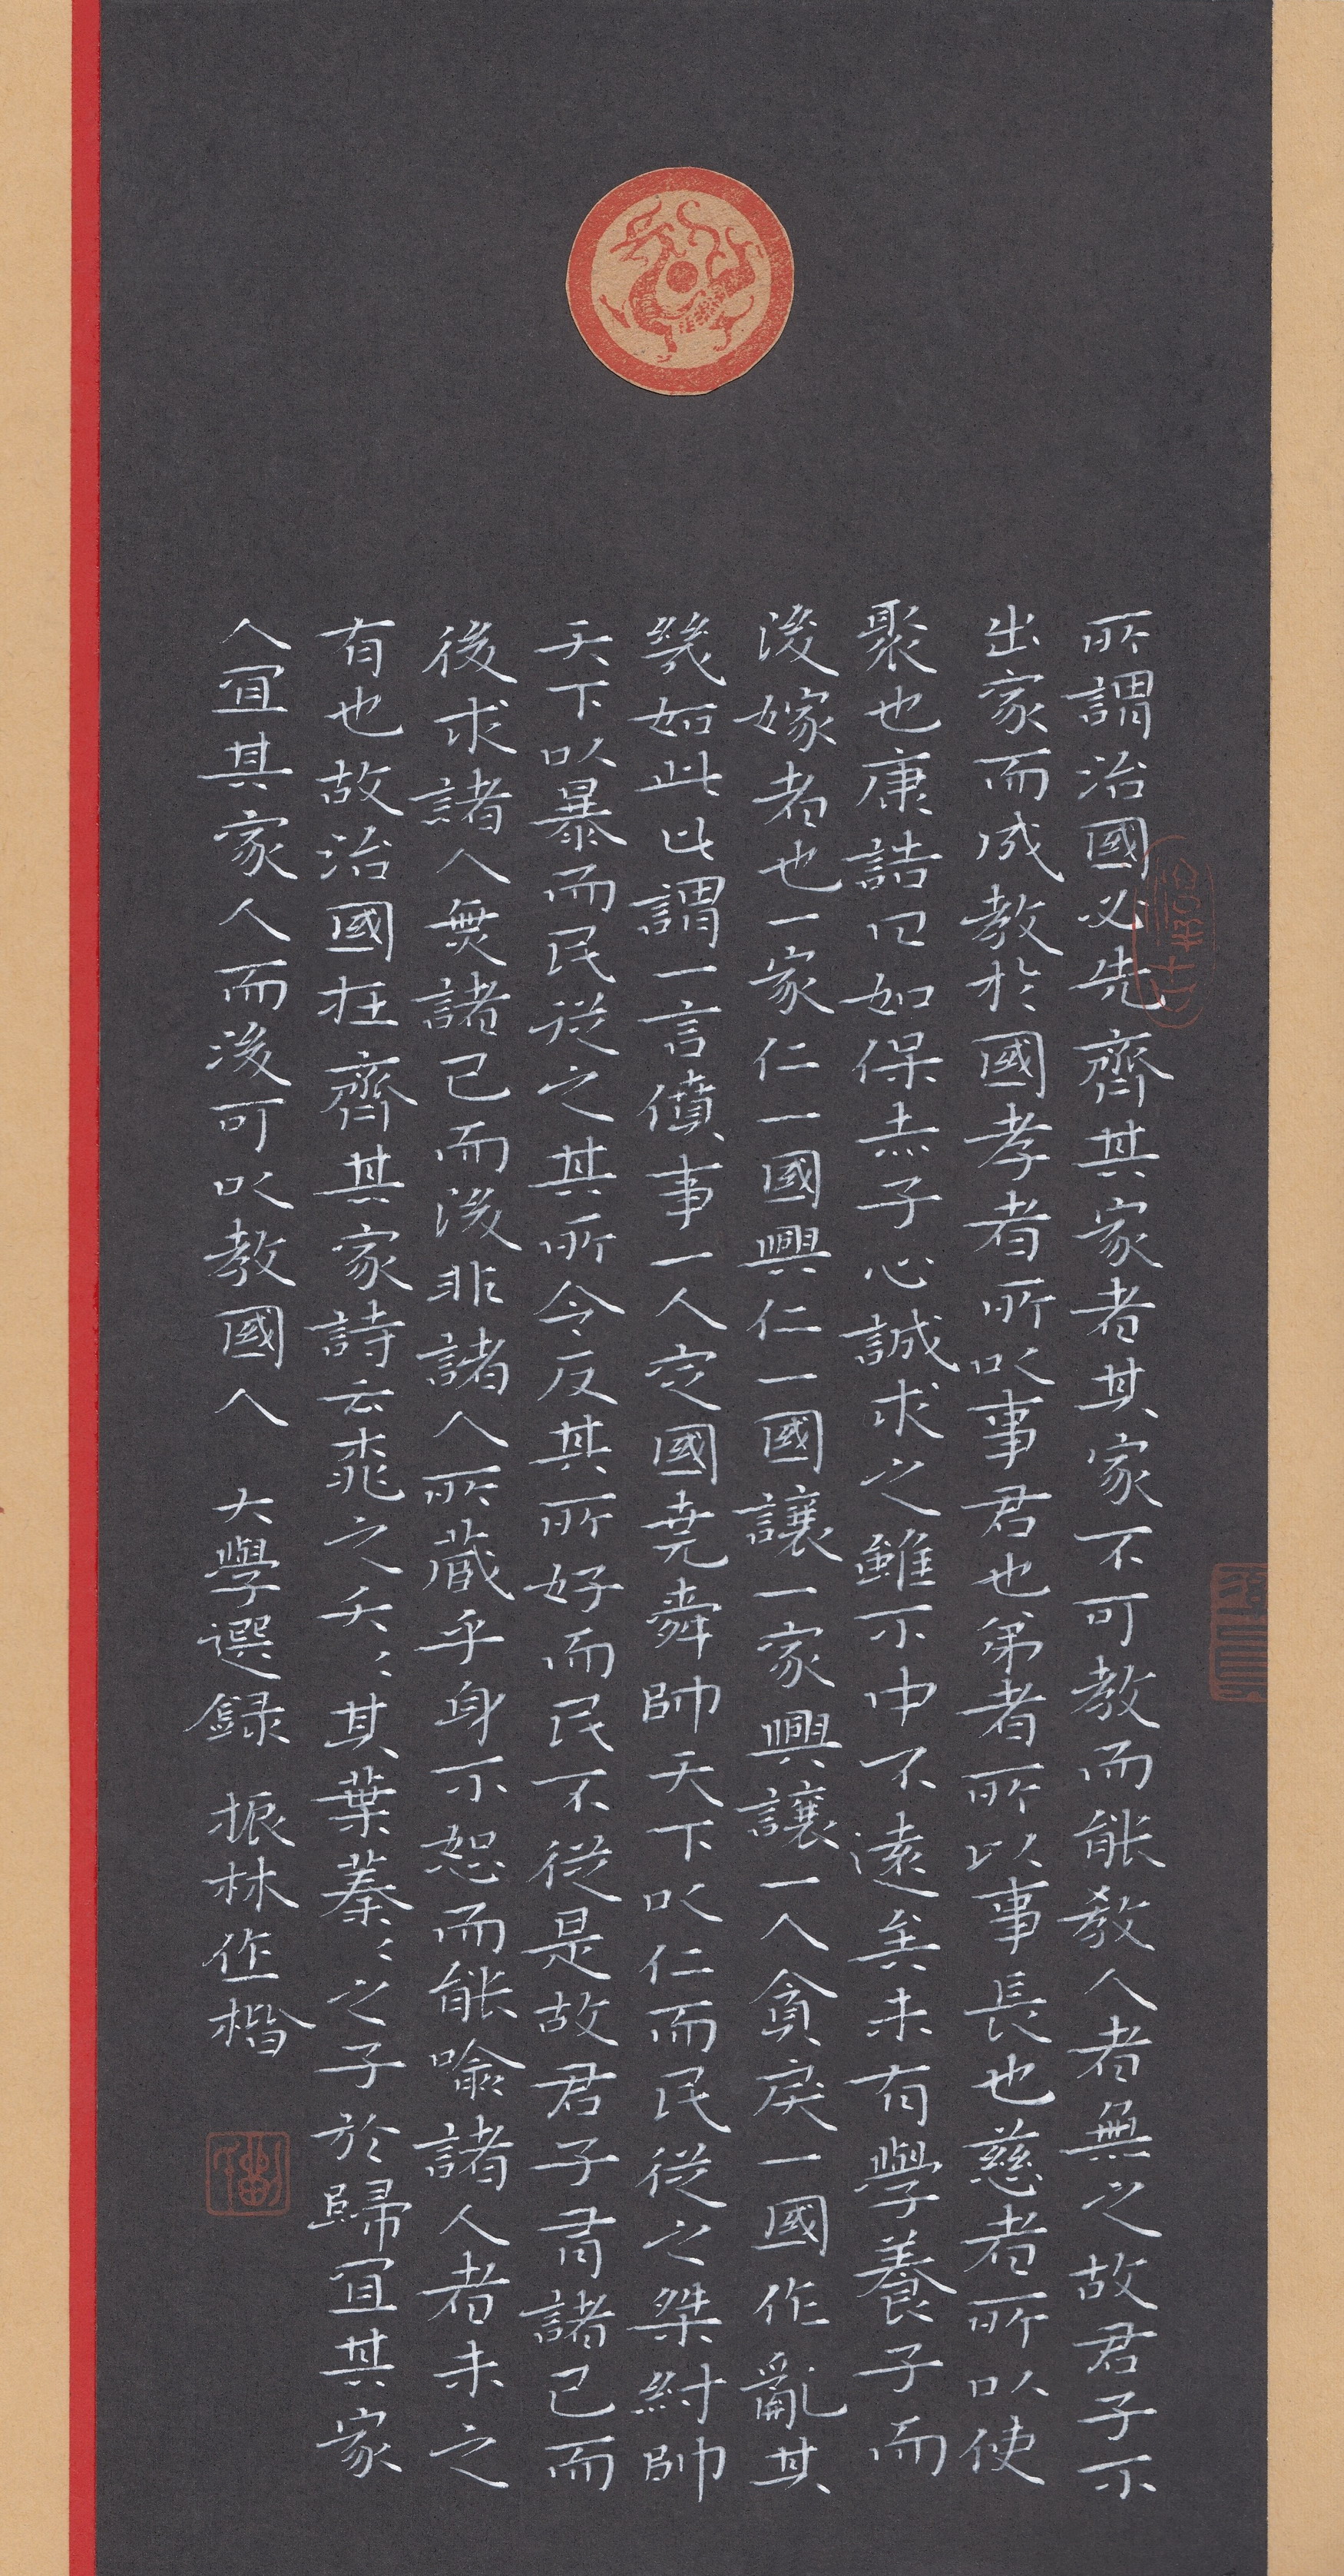 所謂治國必先齊其家者其家不可教而能教人者無之故君子不
出家而成教於國孝者所以事君也弟者所以事長也慈者所以使
聚也康誥曰如保赤子心誠求之雖不中不遠矣未有學養子而
後嫁者也一家仁一國興仁一國讓一家興讓一人貪戾一國作亂其
幾如此此謂一言僨事一人定國堯舜帥天下以仁而民從之桀紂帥
天下以暴而民從之其所令反其所好而民不從是故君子有諸己而
後求諸人無諸己而後非諸人所藏乎身不恕而能喻諸人者未之
有也故治國在齊其家詩云桃之夭〻其葉蓁〻之子於歸宜其家
人宜其家人而後可以教國人 大學選録 振林作楷